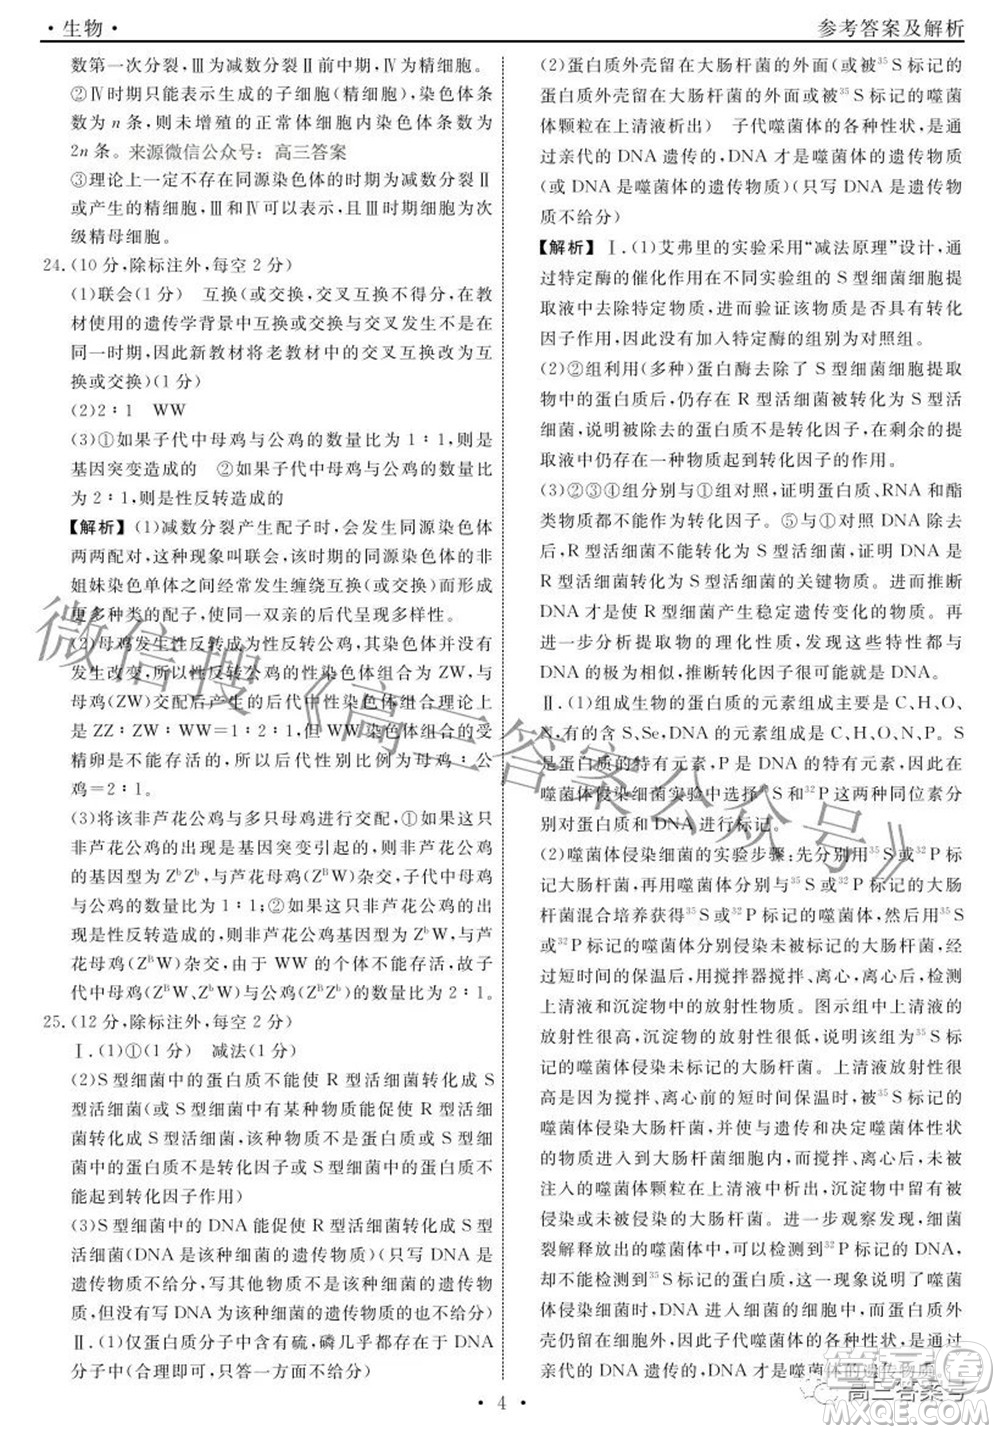 ·生物·
参考答案及解析
数第一次分裂,Ⅲ为减数分裂Ⅱ前中期,Ⅳ为精细胞。
②Ⅳ时期只能表示生成的子细胞(精细胞),染色体条
数为n条,则未增殖的正常体细胞内染色体条数为
2n条。来源微信公众号:高三答案
③理论上一定不存在同源染色体的时期为减数分裂Ⅱ
或产生的精细胞,Ⅲ和Ⅳ可以表示,且Ⅲ时期细胞为次
级精母细胞。
24.(10分,除标注外,每空2分)
(1)联会(1分) 互换(或交换,交叉互换不得分,在教
材使用的遗传学背景中互换或交换与交叉发生不是在
同一时期,因此新教材将老教材中的交叉互换改为互
换或交换)(1分)
(2)2∶1 WW
(3)①如果子代中母鸡与公鸡的数量比为1∶1,则是
基因突变造成的 ②如果子代中母鸡与公鸡的数量比
为2∶1,则是性反转造成的
【解析】(1)减数分裂产生配子时,会发生同源染色体
两两配对,这种现象叫联会,该时期的同源染色体的非
姐妹染色单体之间经常发生缠绕互换(或交换),产生
更多种类的配子,使同一双亲的后代呈现多样性。
(2)母鸡发生性反转成为公鸡,其染色体与基因均没有
发生改变,所以性反转公鸡的性染色体组合为ZW,与
母鸡(ZW)交配后产生的后代中性染色体组合理论上
是ZZ∶ZW∶WW=1∶2∶1,但是没有Z染色体的受
精卵不能发育,所以后代的性别比例为母鸡∶公
鸡=2∶1。
(3)将该非芦花公鸡与多只母鸡进行交配,①如果这只
非芦花公鸡的出现是基因突变引起的,则非芦花公鸡
的基因型为ZᵇZᵇ,与芦花母鸡(ZᴮW)杂交,子代中母鸡
与公鸡的数量比为1∶1;②如果这只非芦花公鸡的出
现是性反转造成的,则非芦花公鸡基因型为ZᵇW,与芦
花母鸡(ZᴮW)杂交,由于WW的个体不能存活,故子
代中母鸡(ZᴮW、ZᵇW)与公鸡(ZᴮZᵇ)的数量比为2∶1。
25.(12分,除标注外,每空2分)
Ⅰ.(1)①(1分) 减法(1分)
(2)S型细菌中的蛋白质不能使R型活细菌转化成S
型活细菌(或S型细菌中有某种物质能促使R型活细
菌转化成S型活细菌,该种物质不是蛋白质或S型细
菌中的蛋白质不是转化因子或S型细菌中的蛋白质不
能起到转化因子作用)
(3)S型细菌中的DNA能促使R型活细菌转化成S型
活细菌(DNA是该种细菌的遗传物质)(只写DNA是
遗传物质不给分,写其他物质不是该种细菌的遗传物
质,但没有写DNA是该种细菌的遗传物质的也不给分)
Ⅱ.(1)仅蛋白质分子中含有硫,磷几乎都存在于DNA
分子中(合理即可,只答一方面不给分)
(2)蛋白质外壳留在大肠杆菌的外面(或被³⁵S标记的
蛋白质外壳留在大肠杆菌的外面或被³⁵S标记的噬菌
体颗粒在上清液析出) 子代噬菌体的各种性状,是
通过亲代的DNA遗传的,DNA是噬菌体的遗传物质
(或DNA是噬菌体的遗传物质)(只写DNA是遗传物
质不给分)
【解析】Ⅰ.(1)艾弗里的实验采用“减法原理”设计,通
过特定酶的催化作用在不同实验组的S型细菌细胞提
取液中去除特定物质,进而验证该物质是否具有转化
因子的作用。因此没有加入特定酶的组别为对照组。
(2)②组利用(多种)蛋白酶去除了S型细菌细胞提取
物中的蛋白质后,仍存在R型活细菌被转化为S型活
细菌,说明被除去的蛋白质不是转化因子,在剩余的物
质中存在一种物质起到转化因子的作用。
(3)②③④组分别与①组对照,证明蛋白质、RNA和酯
类物质都没有转化因子。⑤与①对照DNA除去后,
R型活细菌不能转化为S型活细菌,证明DNA是使
R型活细菌转化为S型活细菌的关键物质。进而推断
DNA才是使R型细菌产生稳定遗传变化的物质。再
进一步分析提取物的理化性质,发现这些特性都与
DNA的极为相似,推断转化因子很可能就是DNA。
Ⅱ.(1)组成生物的蛋白质的元素组成主要是C、H、O、
N,有的含S、Se,DNA的元素组成是C、H、O、N、P。S
是蛋白质的特有元素,P是DNA的特有元素,因此在
噬菌体侵染细菌实验中选择S和P这两种同位素分
别对蛋白质和DNA进行标记。
(2)噬菌体侵染细菌的实验步骤:先分别用³⁵S或³²P标
记大肠杆菌,再用噬菌体分别与³⁵S或³²P标记的大肠
杆菌混合培养获得³⁵S或³²P标记的噬菌体,然后用³⁵S
或³²P标记的噬菌体分别侵染未被标记的大肠杆菌,经
过短时间的保温后,用搅拌器搅拌、离心,离心后,检测
上清液和沉淀物中的放射性物质。图示组中上清液的
放射性很高,沉淀物中的放射性很低,说明该组为³⁵S标
记的噬菌体侵染未标记的大肠杆菌。上清液放射性很
高是因为搅拌、离心前的短时间保温中,被³⁵S标记的
噬菌体侵染大肠杆菌,并使与遗传和代谢有关的物
质进入到大肠杆菌细胞内,而搅拌、离心后,未被
注入的噬菌体颗粒在上清液中析出,沉淀物中留有被
侵染或未被侵染的大肠杆菌。进一步观察发现,细菌
裂解放出的噬菌体中,可以检测到³²P标记的DNA,
但却不能检测到³⁵S标记的蛋白质,这一现象说明了噬菌
体侵染细菌时,DNA进入到细菌的细胞中,而蛋白质外
壳仍留在细胞外面,因此子代噬菌体的各种性状是通过
亲代的DNA遗传的,DNA才是噬菌体的遗传物质。
· 4 ·
微信搜《高三答案公众号》
答案圈
MXQE.COM
高三答案号